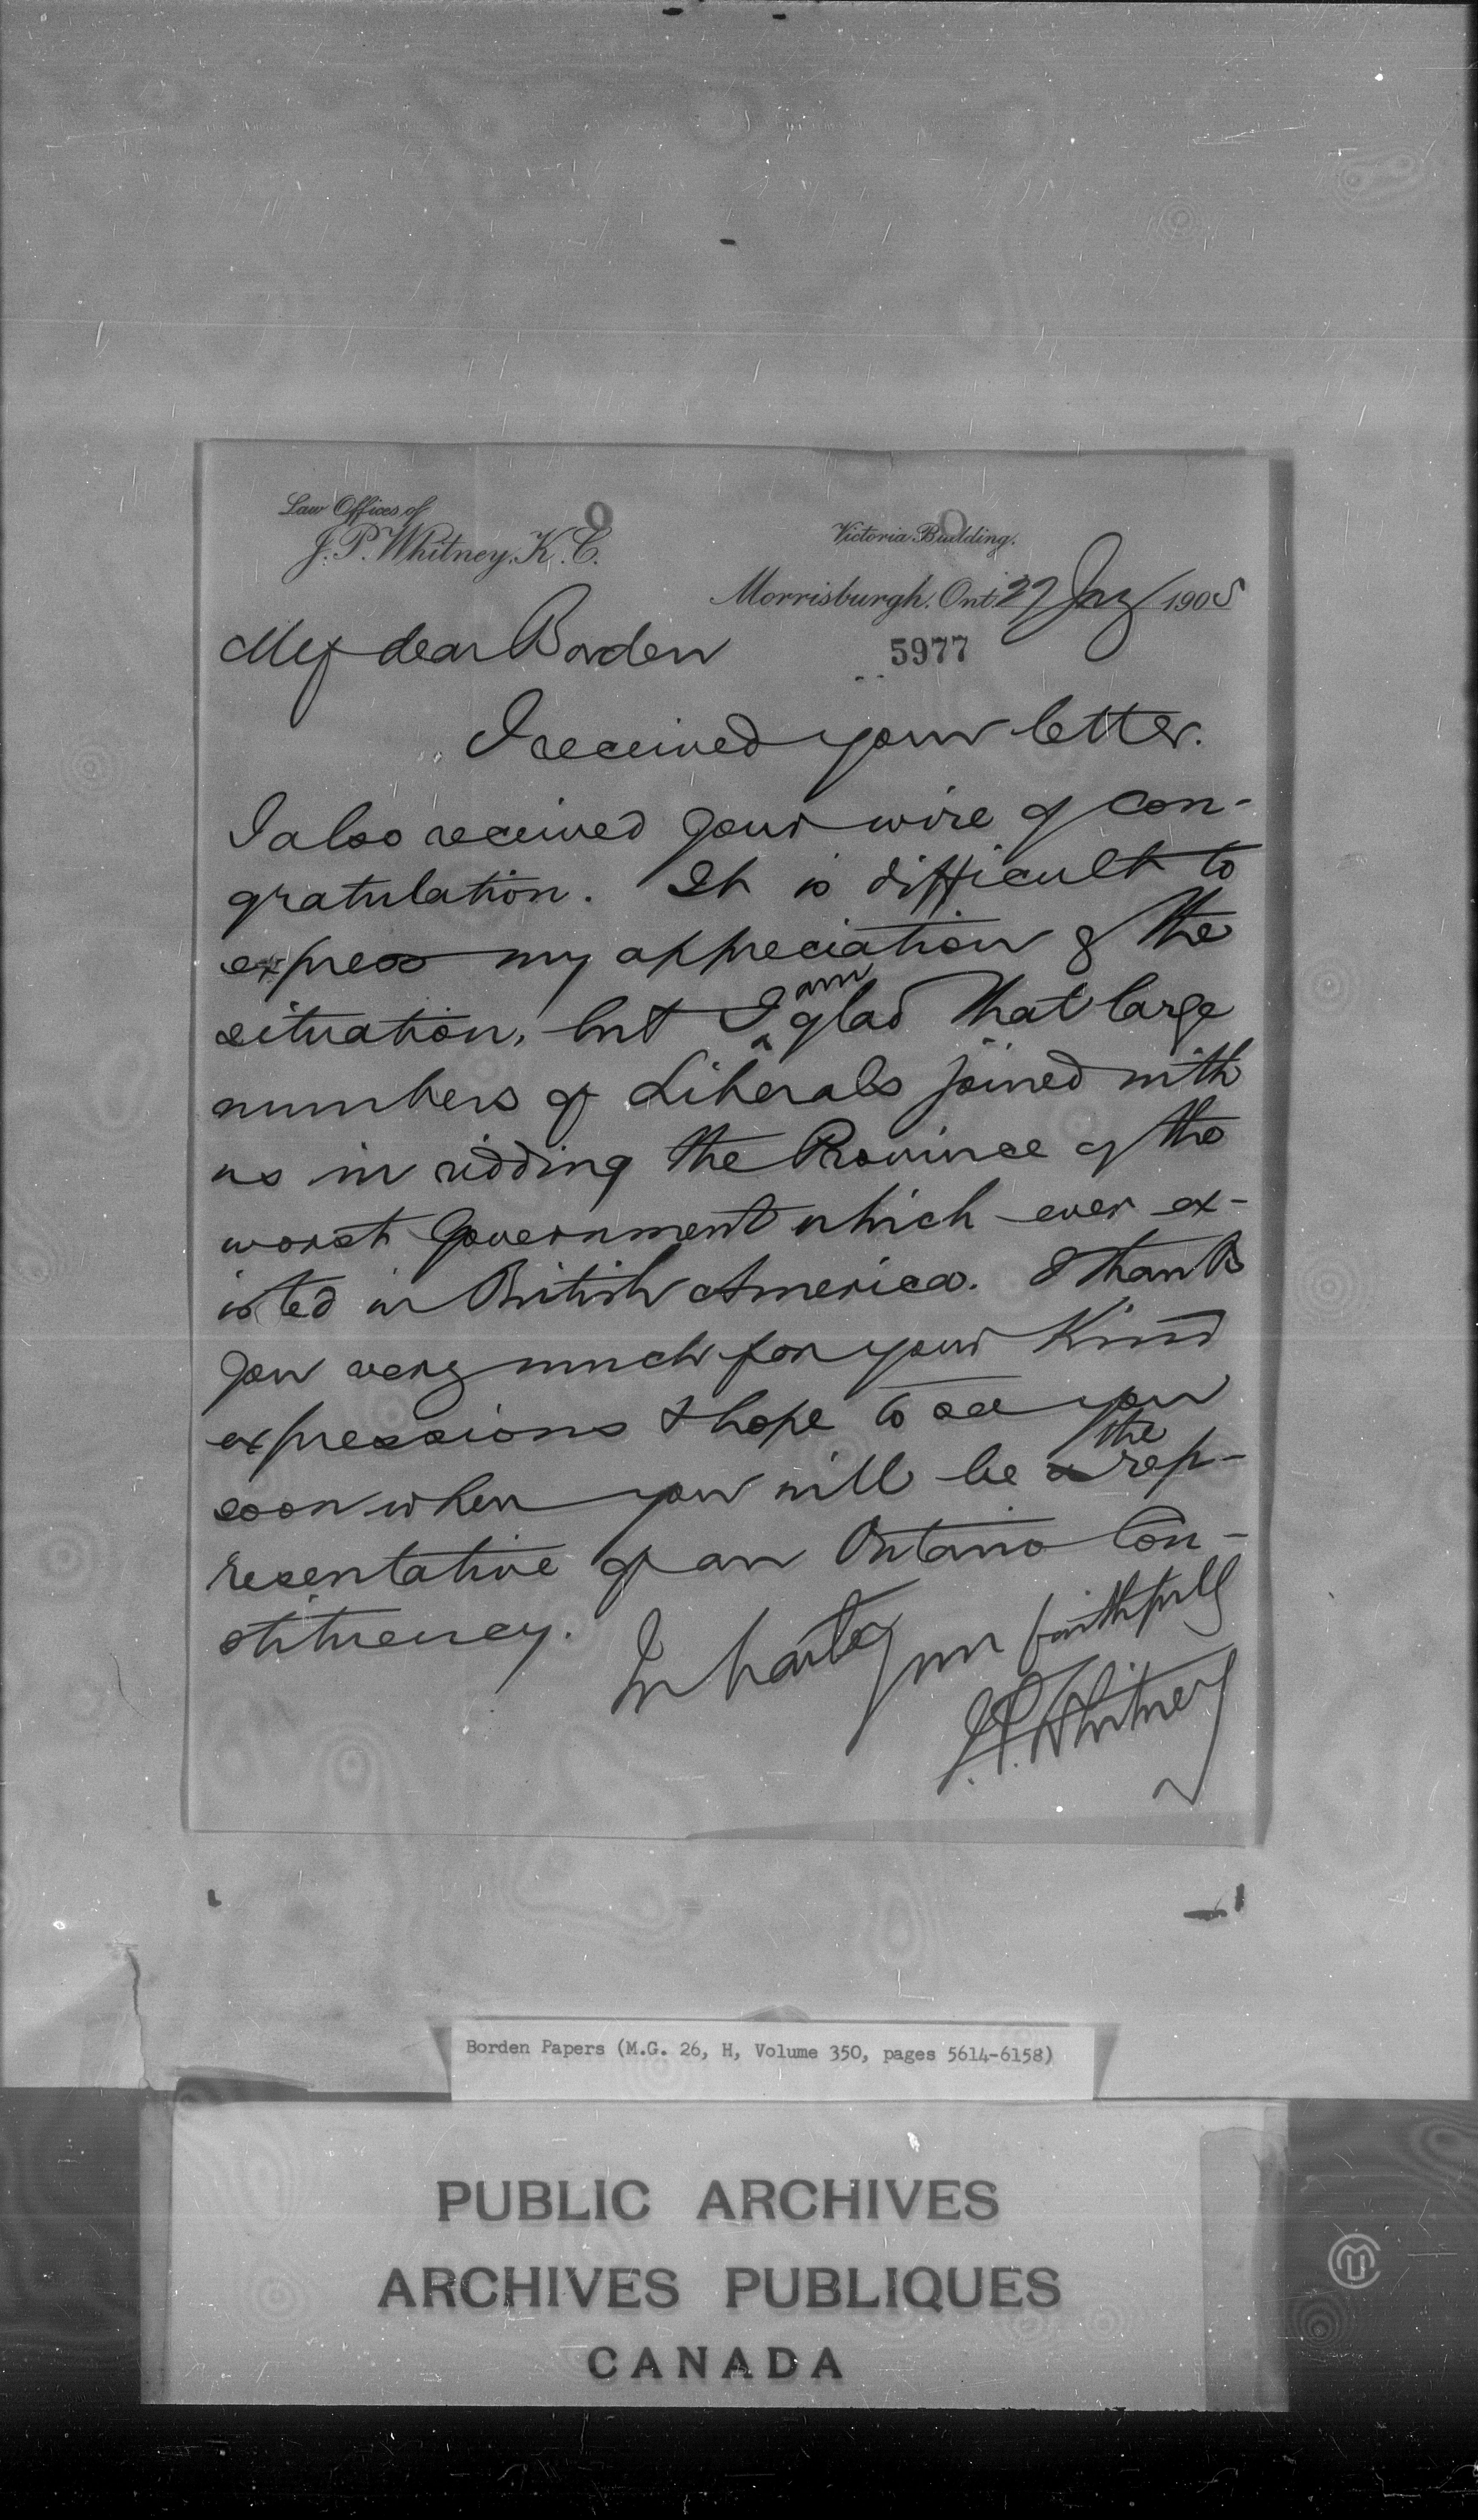 Law Offices of
J. P. Whitney, K. C.
Victoria Building.
Morrisburgh, Ont. Jny 1905
5977
My dear Borden
I received your letter.
I also received your wire of con-
gratulation. It is difficult to
express my appreciation of the
situation, but I am glad that large
numbers of Liberals joined with
us in ridding the Province of the
worst Government which ever ex-
isted in British America. I thank
you very much for your kind
expressions & hope to see you
soon when you will be the rep-
resentative of an Ontario Con-
stituency.
In haste your faithfully
J. P. Whitney
Borden Papers (M.G. 26, H, Volume 350, pages 5614-6158)
PUBLIC ARCHIVES
ARCHIVES PUBLIQUES
CANADA